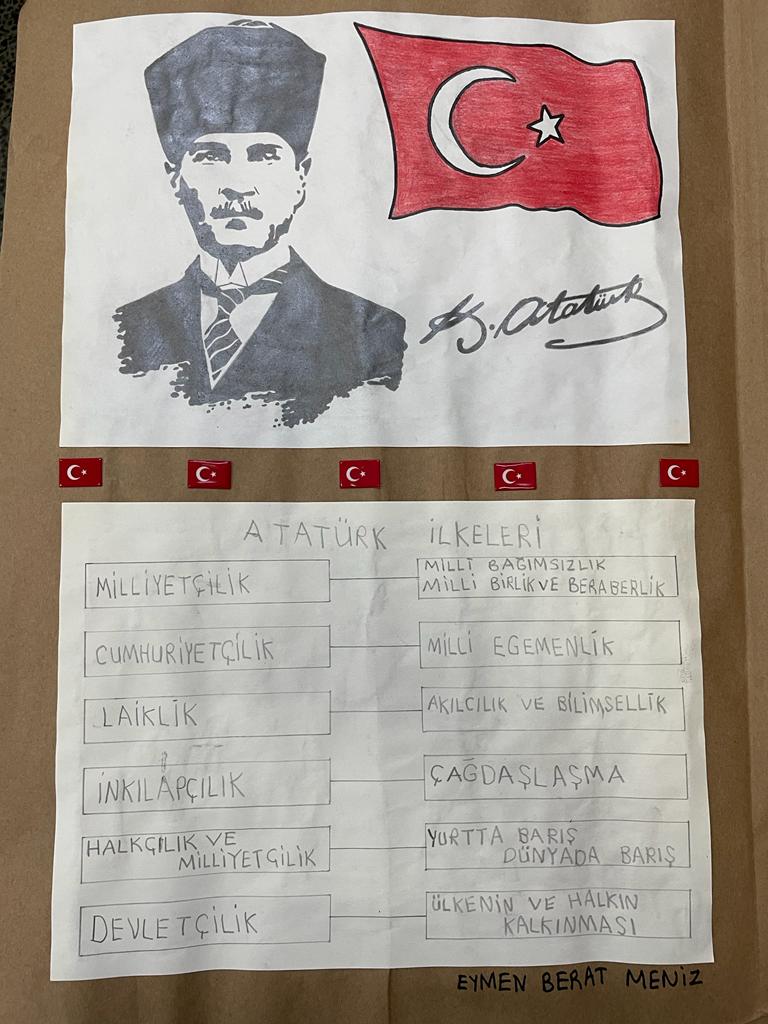 K. Atatürk
ATATÜRK İLKELERİ
MİLLİYETÇİLİK
MİLLİ BAĞIMSIZLIK
MİLLİ BİRLİK VE BERABERLİK
CUMHURİYETÇİLİK
MİLLİ EGEMENLİK
LAİKLİK
AKILCILIK VE BİLİMSELLİK
İNKILAPÇILIK
ÇAĞDAŞLAŞMA
HALKÇILIK VE
MİLLİYETÇİLİK
YURTTA BARIŞ
DÜNYADA BARIŞ
DEVLETÇİLİK
ÜLKENİN VE HALKIN
KALKINMASI
EYMEN BERAT MENİZ